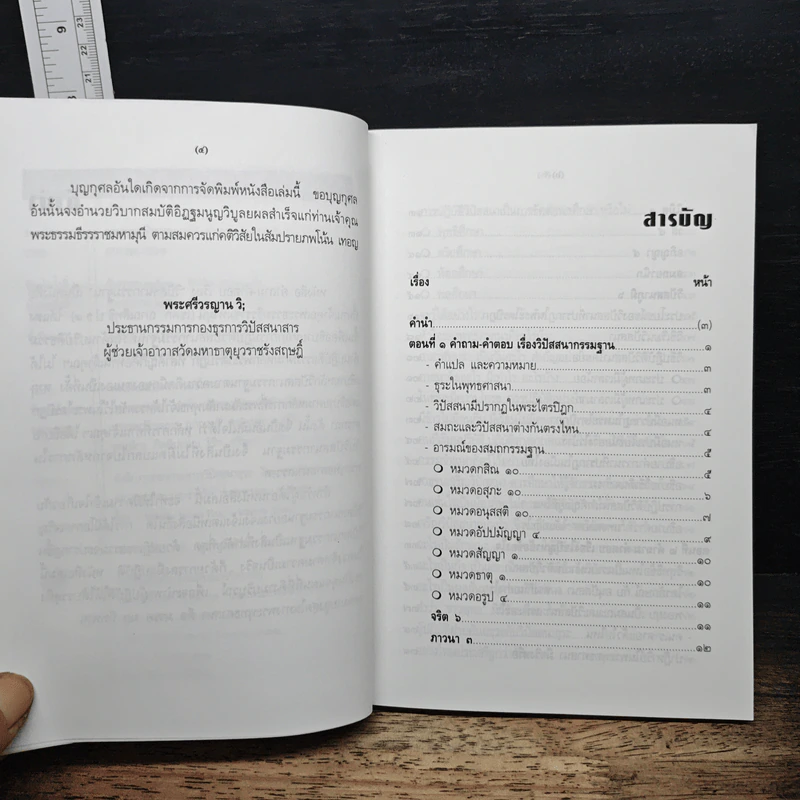 9
23
22
21
8
(๔)
บุญกุศลอันใดเกิดจากการจัดพิมพ์หนังสือเล่มนี้ ขอบุญกุศล
อันนั้นจงอำนวยวิบากสมบัติอิฏฐมนูญวิบูลยผลสำเร็จแก่ท่านเจ้าคุณ
พระธรรมธีรราชมหามุนี ตามสมควรแก่คติวิสัยในสัมปรายภพโน้น เทอญ
พระศรีวรญาน วิ;
ประธานกรรมการกองธุรการวิปัสสนาสาร
ผู้ช่วยเจ้าอาวาสวัดมหาธาตุยุวราชรังสฤษฎิ์
สารบัญ
เรื่อง หน้า
คำนำ (๓)
ตอนที่ ๑ คำถาม-คำตอบ เรื่องวิปัสสนากรรมฐาน ๑
- คำแปล และความหมาย ๓
- ธุระในพุทธศาสนา ๓
- วิปัสสนามีปรากฏในพระไตรปิฎก ๔
- สมถะและวิปัสสนาต่างกันตรงไหน ๔
- อารมณ์ของสมถกรรมฐาน ๕
❍ หมวดกสิณ ๑๐ ๕
❍ หมวดอสุภะ ๑๐ ๖
❍ หมวดอนุสสติ ๑๐ ๗
❍ หมวดอัปปมัญญา ๔ ๙
❍ หมวดสัญญา ๑ ๑๐
❍ หมวดธาตุ ๑ ๑๐
❍ หมวดอรูป ๔ ๑๑
จริต ๖ ๑๑
ภาวนา ๓ ๑๒